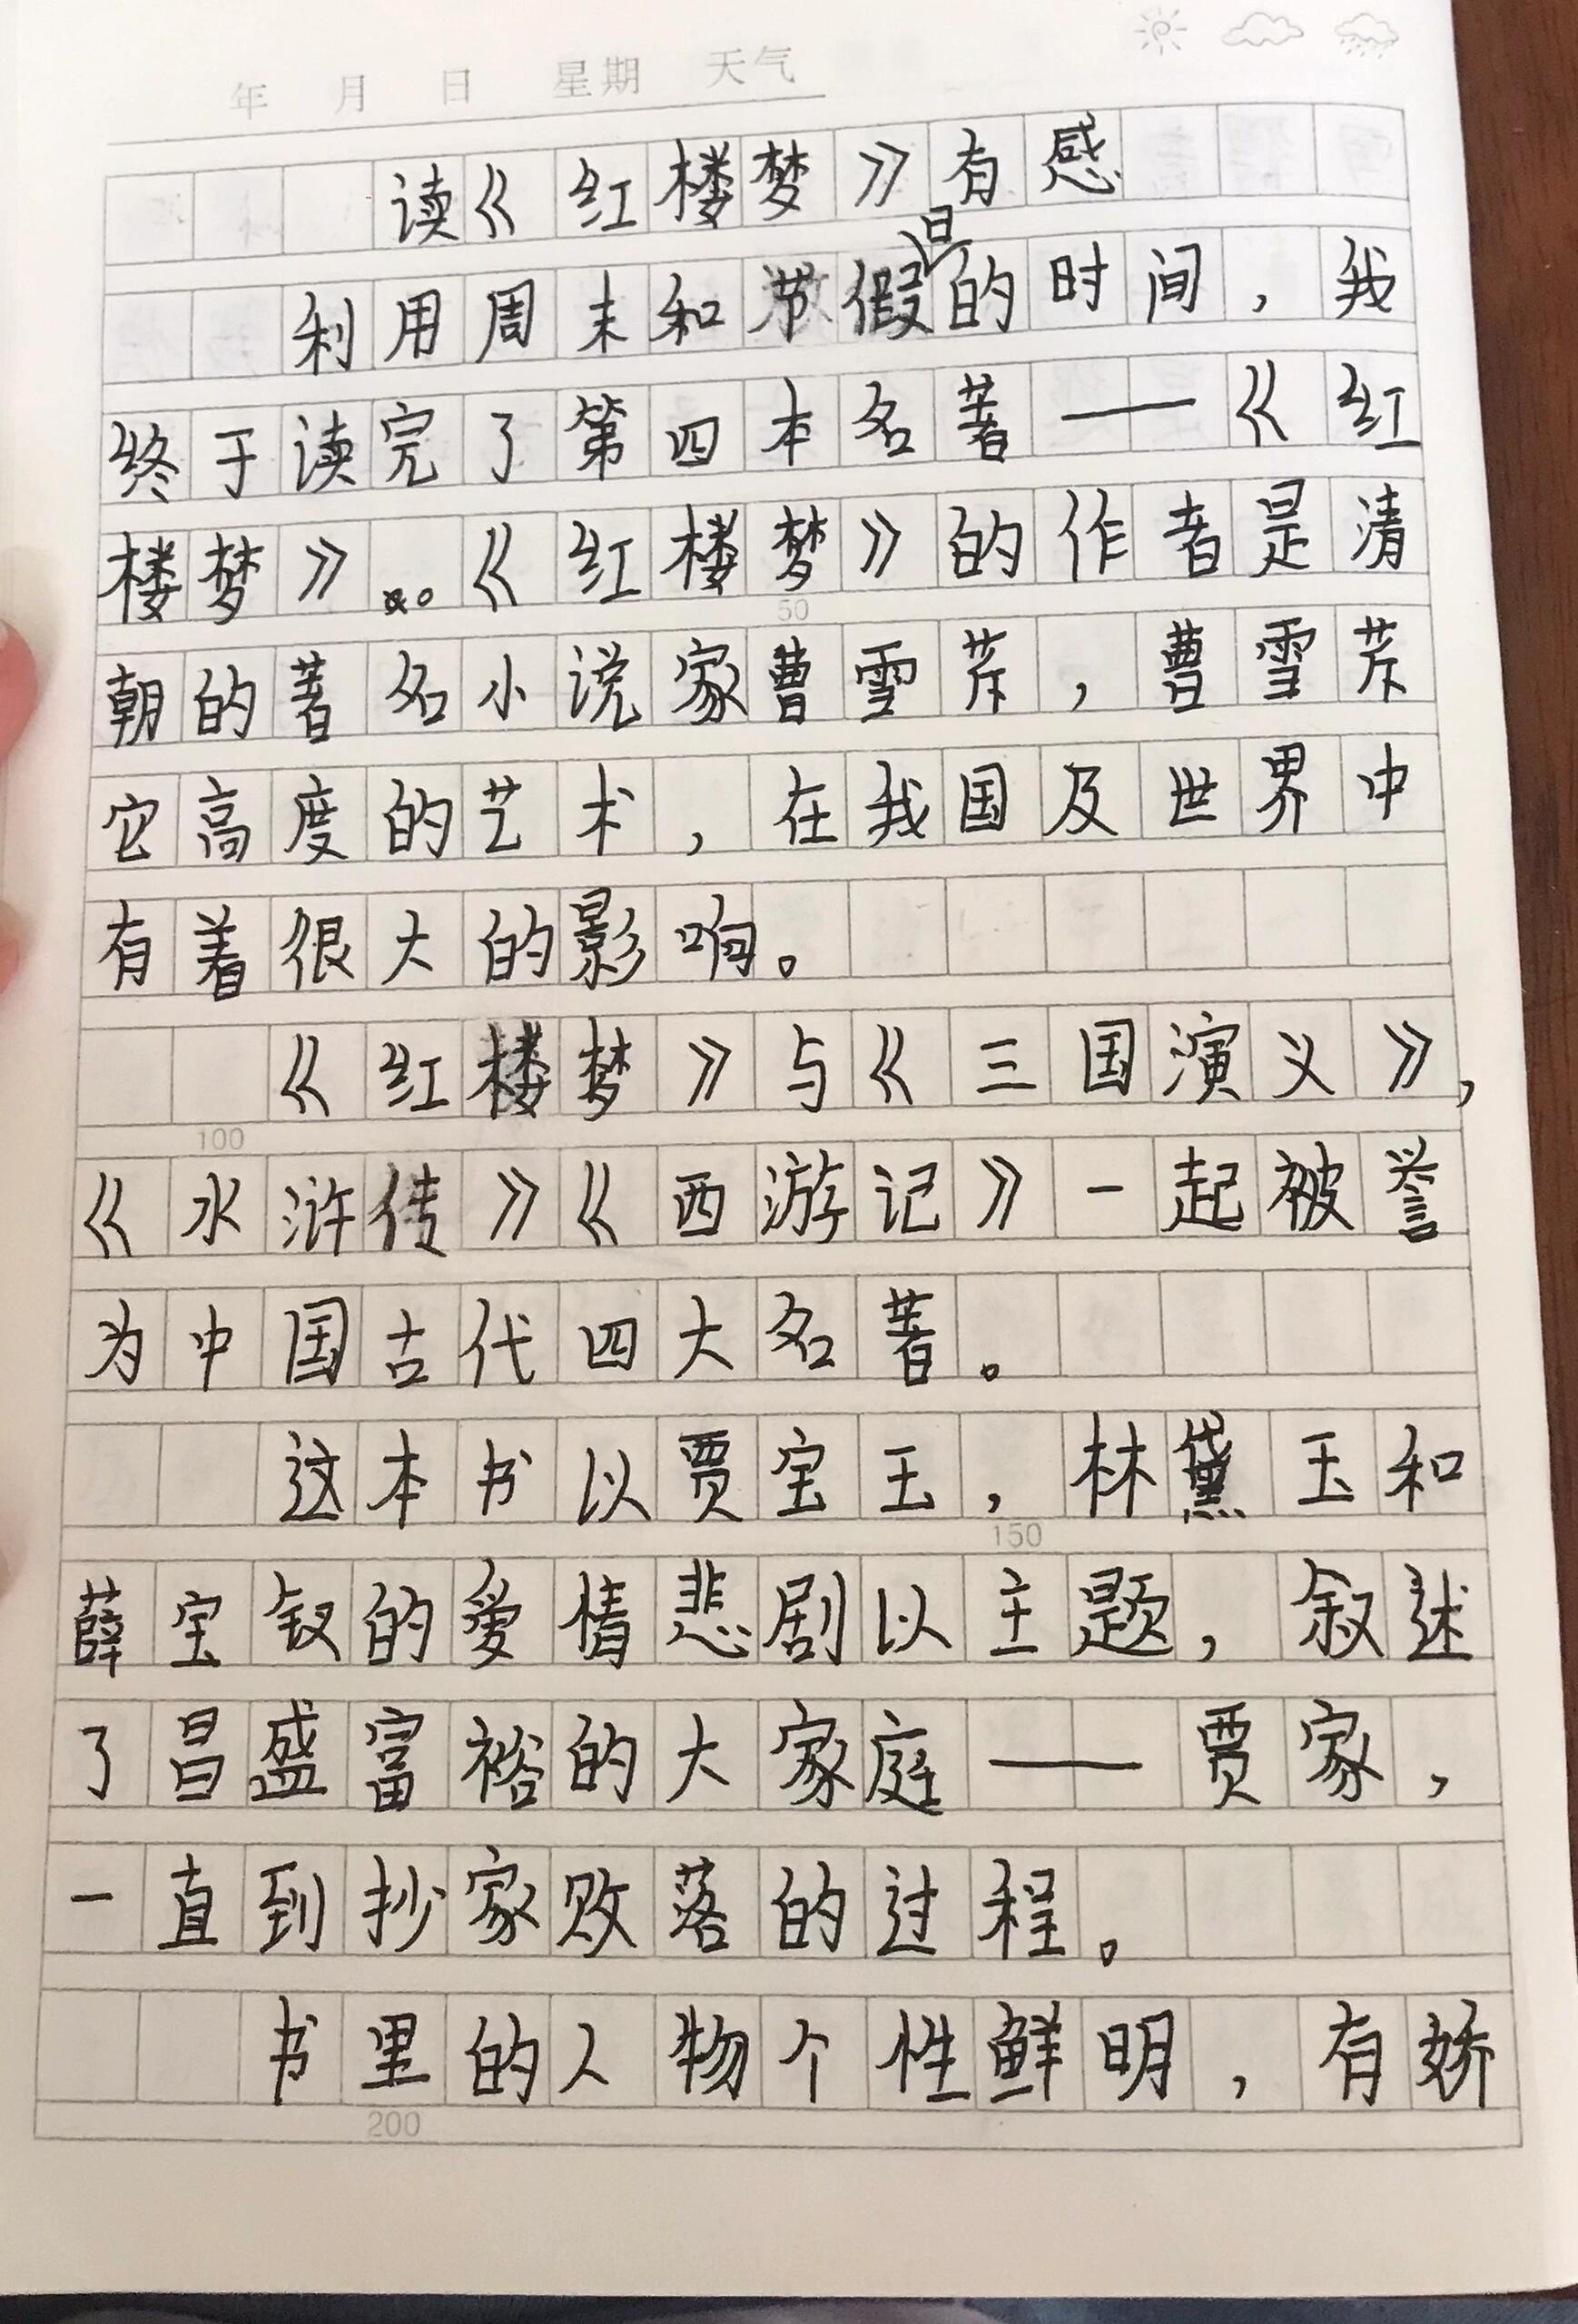 年 月 日 星期 天气
读《红楼梦》有感
利用周末和节假日的时间，我
终于读完了第四本名著——《红
楼梦》。《红楼梦》的作者是清
朝的著名小说家曹雪芹，曹雪芹
它高度的艺术，在我国及世界中
有着很大的影响。
《红楼梦》与《三国演义》，
《水浒传》《西游记》一起被誉
为中国古代四大名著。
这本书以贾宝玉，林黛玉和
薛宝钗的爱情悲剧以主题，叙述
了昌盛富裕的大家庭——贾家，
一直到抄家败落的过程。
书里的人物个性鲜明，有娇
50
100
150
200